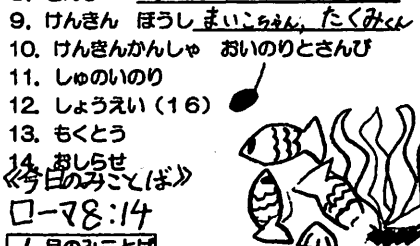 9. けんきん ほうし まいこちゃん, たくみくん
10. けんきんかんしゃ おいのりとさんび
11. しゅのいのり
12. しょうえい(16)
13. もくとう
14. おしらせ
《今日のみことば》
ローマ8:14